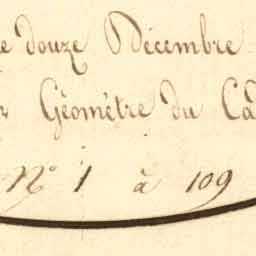 e douze Décembre
Géomètre du Ca
N° 1 à 109